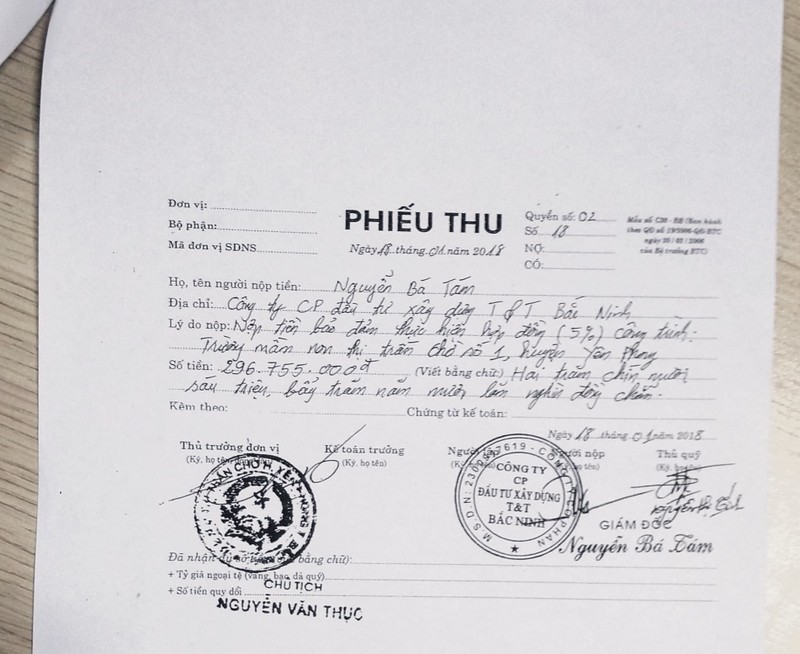 Đơn vị:
Bộ phận:
Mã đơn vị SDNS
PHIẾU THU
Ngày 18 tháng 01 năm 2018
Quyển số: 02
Số 18
NỢ:
CÓ:
Mẫu số C30 - BB (Ban hành
theo QĐ số 19/2006-QĐ-BTC
ngày 30/03/2006
của Bộ trưởng BTC)
Họ, tên người nộp tiền: Nguyễn Bá Tám
Địa chỉ: Công ty CP đầu tư xây dựng T&T Bắc Ninh
Lý do nộp: Nộp tiền bảo đảm thực hiện hợp đồng (5%) công trình:
Trường mầm non thị trấn chờ số 1, huyện Yên Phong
Số tiền: 296.755.000đ (Viết bằng chữ) Hai trăm chín mươi
sáu triệu, bẩy trăm năm mươi lăm nghìn đồng chẵn.
Kèm theo: Chứng từ kế toán:
Ngày 18 tháng 01 năm 2018
Thủ trưởng đơn vị Kế toán trưởng Người nộp Thủ quỹ
(Ký, họ tên) (Ký, họ tên) (Ký, họ tên)
M.S.D.N: CÔNG TY CỔ PHẦN
CÔNG TY
CP
ĐẦU TƯ XÂY DỰNG
T&T
BẮC NINH
GIÁM ĐỐC
Nguyễn Bá Tám
Đã nhận đủ số bằng chữ):
+ Tỷ giá ngoại tệ (vàng, bạc, đá quý)
+ Số tiền quy đổi
CHỦ TỊCH
NGUYỄN VĂN THỤC